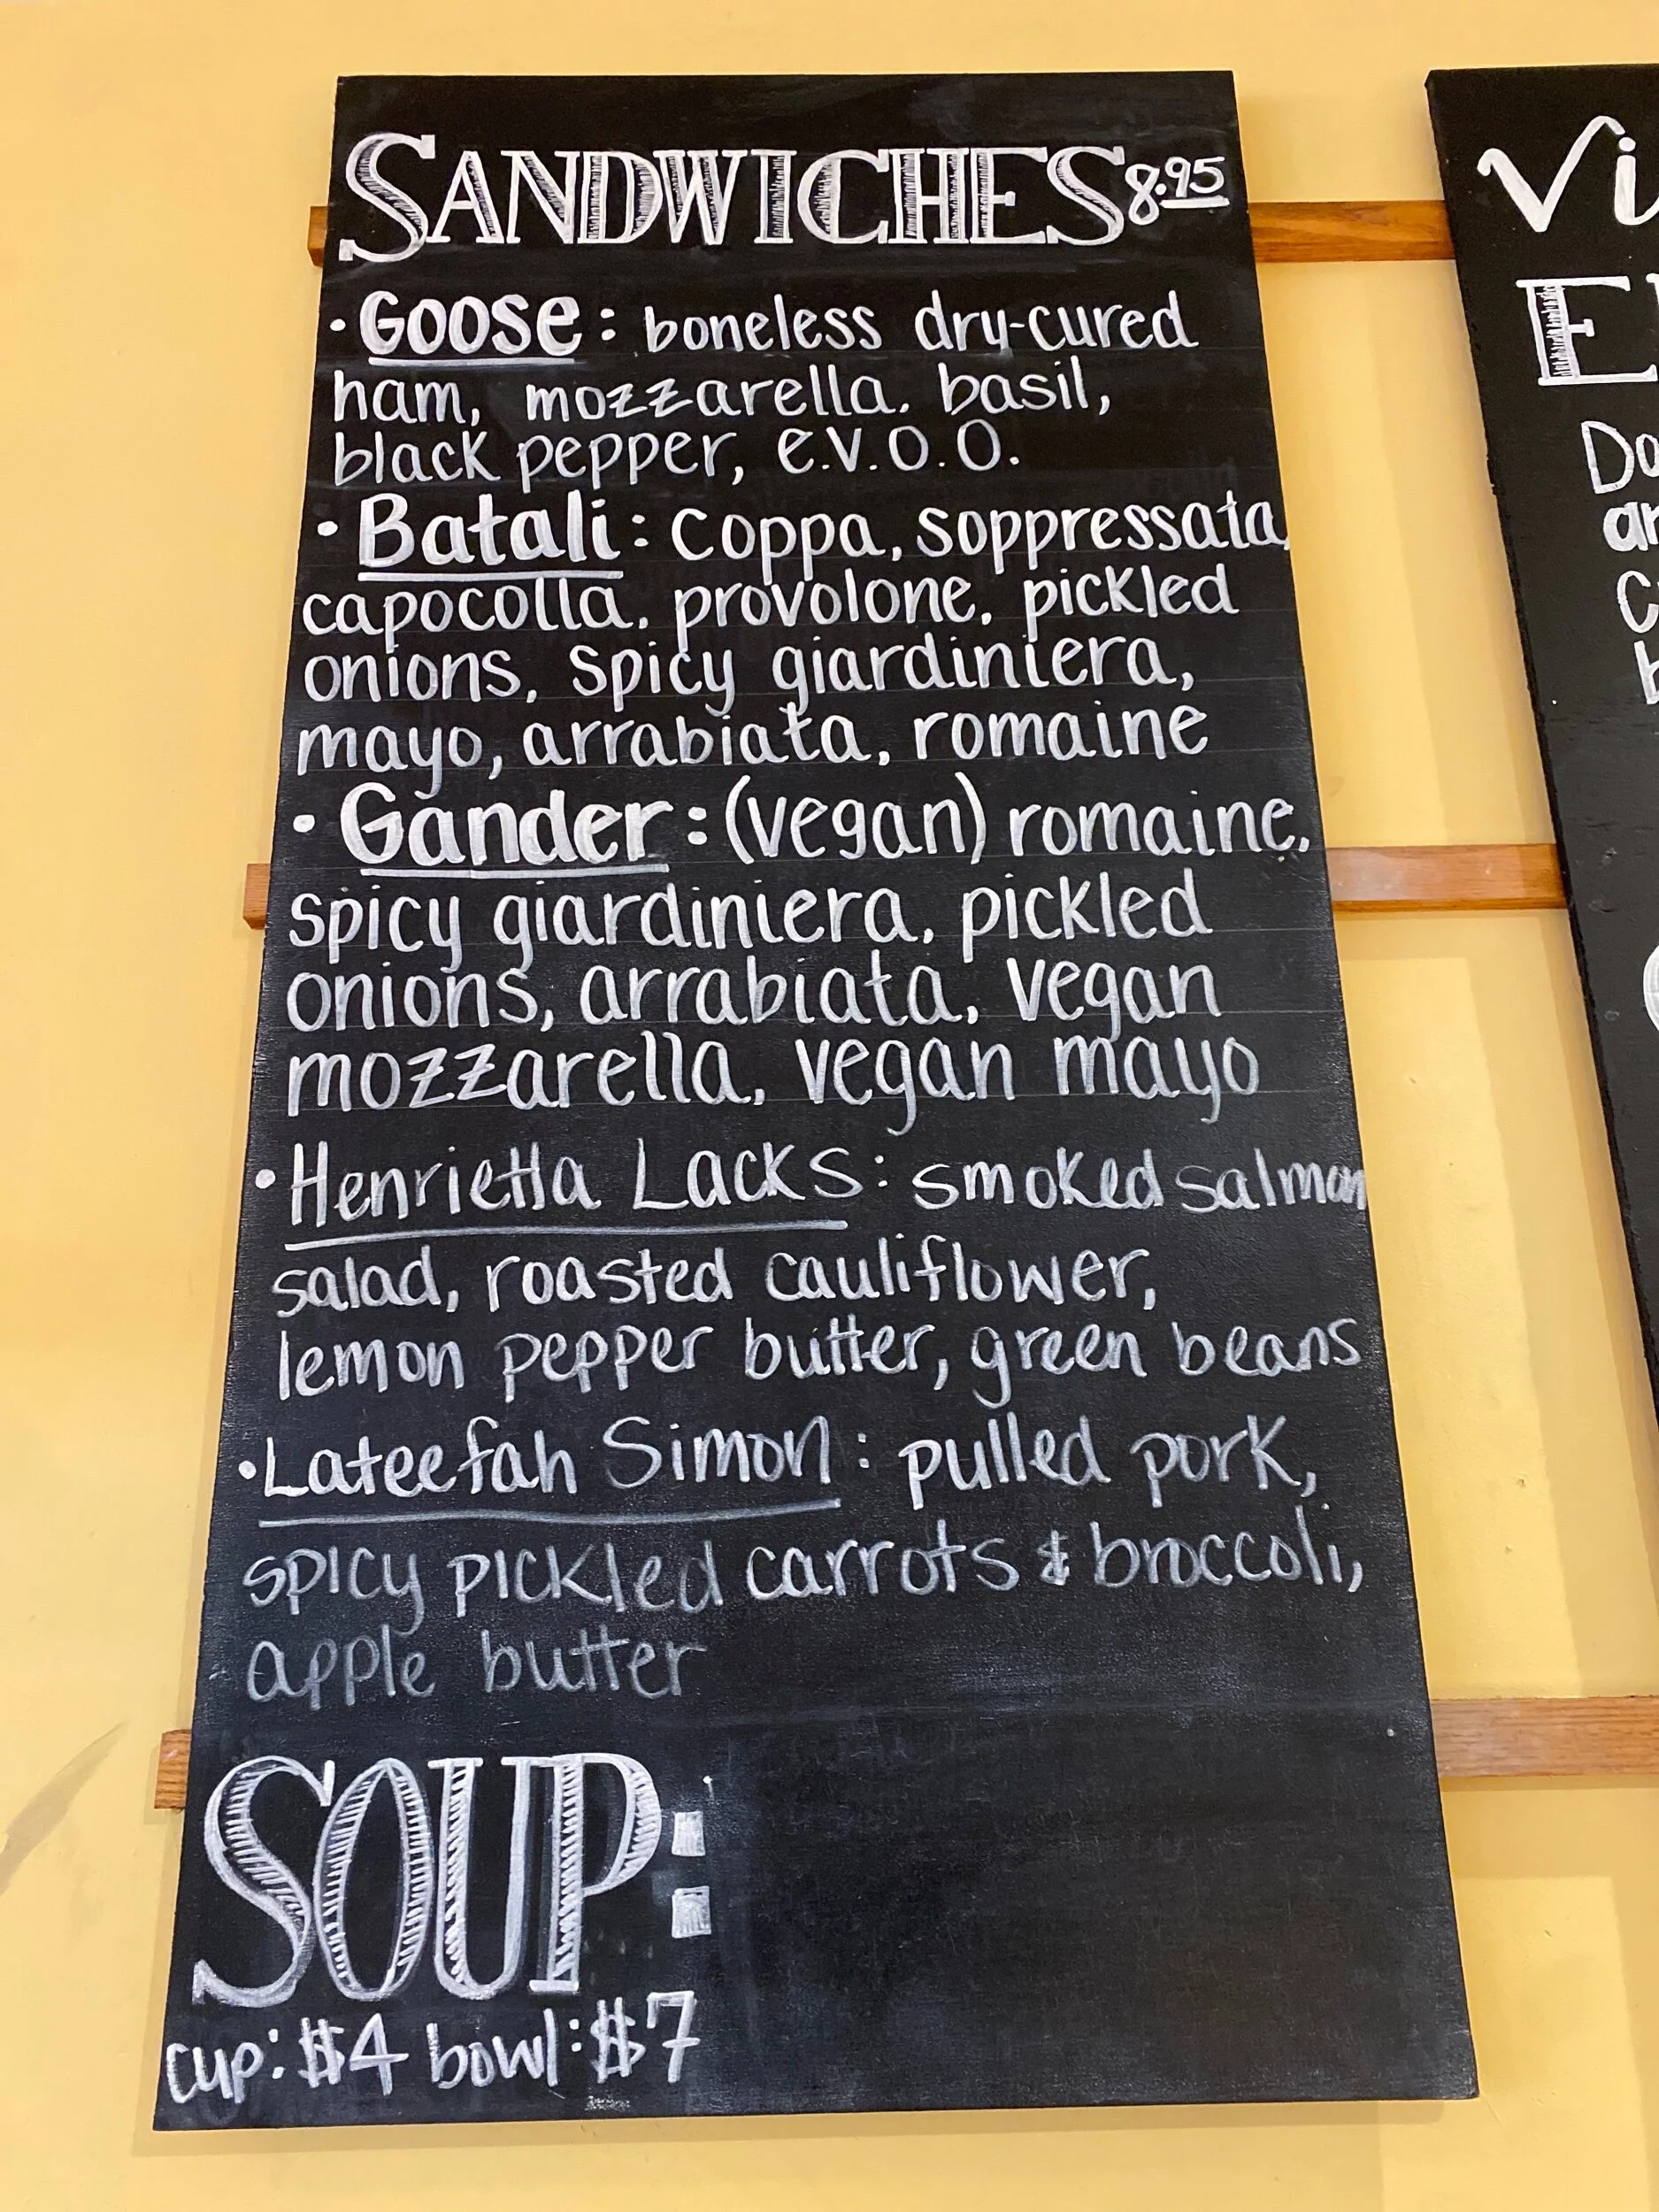 SANDWICHES 8.95
• Goose: boneless dry-cured
ham, mozzarella, basil,
black pepper, e.v.o.o.
• Batali: coppa, soppressata,
capocolla, provolone, pickled
onions, spicy giardiniera,
mayo, arrabiata, romaine
• Gander: (vegan) romaine,
spicy giardiniera, pickled
onions, arrabiata, vegan
mozzarella, vegan mayo
• Henrietta Lacks: smoked salmon
salad, roasted cauliflower,
lemon pepper butter, green beans
• Lateefah Simon: pulled pork,
spicy pickled carrots & broccoli,
apple butter
SOUP:
cup: $4 bowl: $7